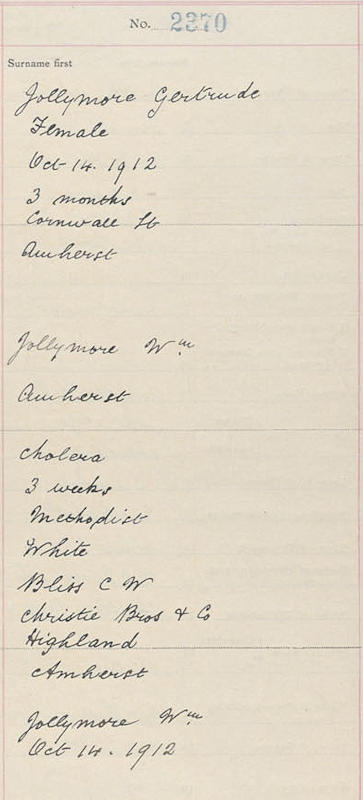 No. 2370
Surname first
Jollymore Gertrude
Female
Oct 14. 1912
3 months
Cornwall St
Amherst
Jollymore Wm
Amherst
Cholera
3 weeks
Methodist
White
Bliss C W
Christie Bros & Co
Highland
Amherst
Jollymore Wm
Oct 14. 1912